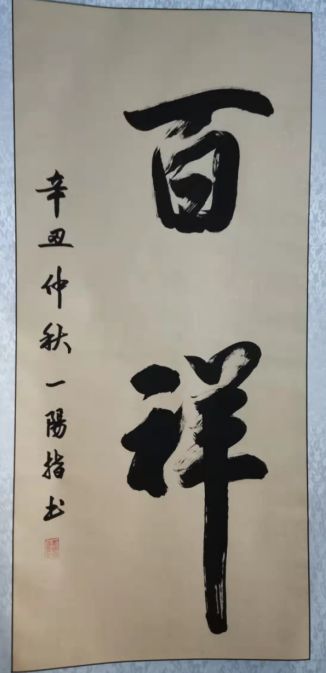 百祥
辛丑仲秋一陽指书